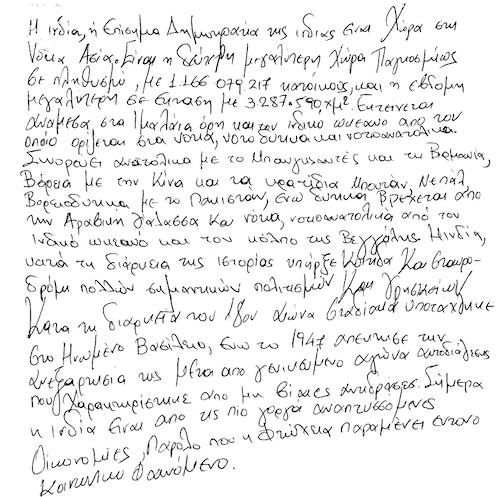 Η Ινδία, ή Επίσημα Δημοκρατία της Ινδίας είναι Χώρα στη
Νότια Ασία. Είναι η δεύτερη μεγαλύτερη Χώρα Παγκοσμίως
σε πληθυσμό, με 1.166.079.217 κατοίκους, και η έβδομη
μεγαλύτερη σε Έκταση με 3.287.590 χμ². Εκτείνεται
ανάμεσα στα Ιμαλάια όρη και τον Ινδικό ωκεανό από τον
οποίο ορίζεται στα νότια, νοτιοδυτικα και νοτιοανατολικα.
Συνορεύει ανατολικα με το Μπαγκλαντές και τη Βιρμανία,
Βόρεια με την Κίνα και τα κρατίδια Μπουτάν, Νεπάλ,
Βορειοδυτικα με το Πακιστάν, ενώ δυτικα βρέχεται απο
την Αραβική θάλασσα και νότια, νοτιοανατολικά από τον
Ινδικό ωκεανό και τον κόλπο της Βεγγάλης. Η Ινδία,
κατά τη διάρκεια της ιστορίας υπήρξε Κοιτίδα Και σταυρο-
δρόμι πολλών σημαντικών πολιτισμών Και θρησκειών
Κατα τη διαρκεια του 18ου αιώνα σταδιακά υποτάχθηκε
στο Ηνωμένο Βασίλειο, ενω το 1947 απέκτησε την
ανεξαρτησία της μετά απο γενικευμένο αγώνα αυτοδιάθεσης
που Χαρακτηρίστηκε απο μη βίαιες αντιδράσεις. Σήμερα
η Ινδία είναι από τις πιο γοργά αναπτυσσόμενες
Οικονομίες, Παρόλο που η Φτώχεια παραμένει έντονο
Κοινωνικο Φαινόμενο.